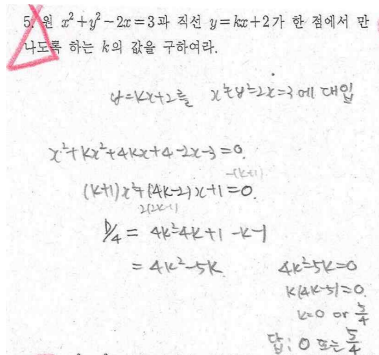 5. 원 x²+y²-2x=3과 직선 y=kx+2가 한 점에서 만
나도록 하는 k의 값을 구하여라.
y=kx+2를 x²+y²-2x=3에 대입
x²+kx²+4kx+4-2x-3=0.
-(k+1)
(k+1)x²+(4k-2)x+1=0.
2(2k-1)
D/4 = 4k²-4k+1-k-1
= 4k²-5k
4k²-5k=0
k(4k-5)=0
k=0 or 5/4
답: 0 또는 5/4